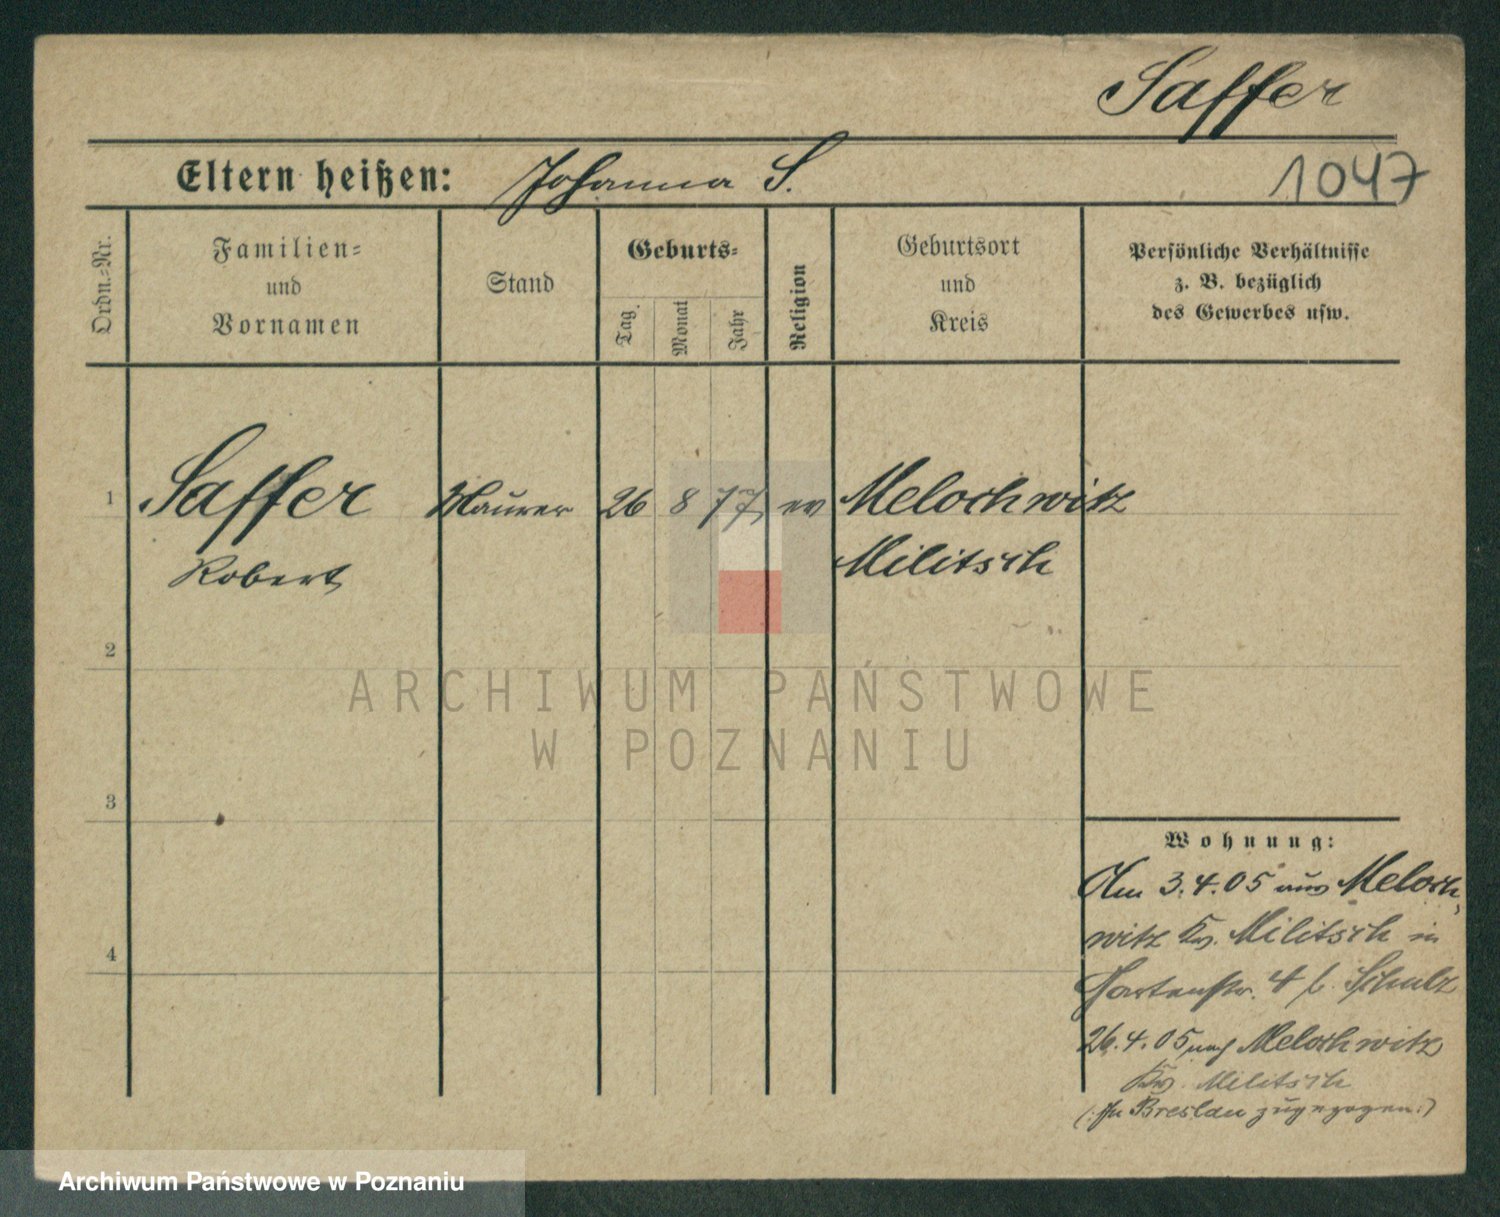 Saffer
Eltern heißen: Johanna S.
1047
Ordn.-Nr.
Familien-
und
Vornamen
Stand
Geburts-
Tag.
Monat
Jahr
Religion
Geburtsort
und
Kreis
Persönliche Verhältnisse
z. B. bezüglich
des Gewerbes usw.
1 Saffer Maurer 26 8 77 ev Melochwitz
Robert Militsch
2
ARCHIWUM PAŃSTWOWE
W POZNANIU
3
Wohnung:
Am 3.4.05 aus Meloch-
witz Krs. Militsch in
Gartenstr. 4 b. Schulz
4
26.4.05 nach Melochwitz
Krs. Militsch
(: In Breslau zugezogen :)
Archiwum Państwowe w Poznaniu